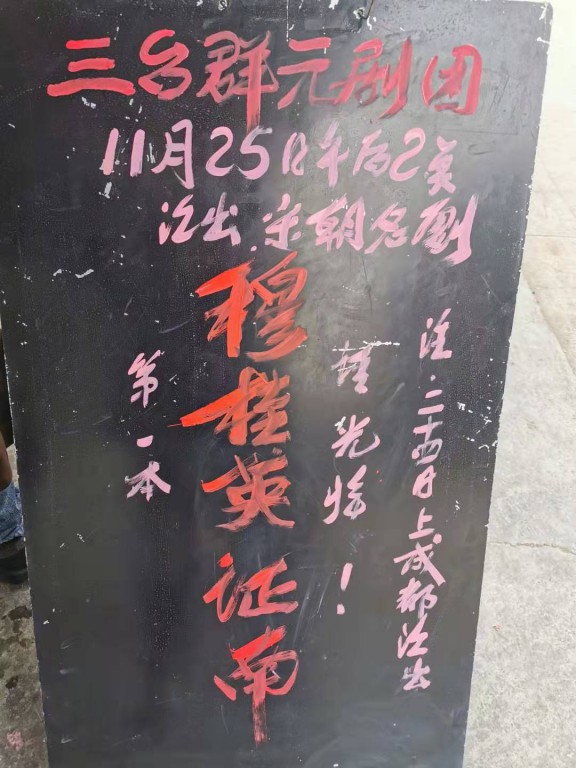 三台群元剧团
11月25日午后2点
演出宋朝名剧
穆桂英征南
第一本
请光临！
注.二十四日上成都演出